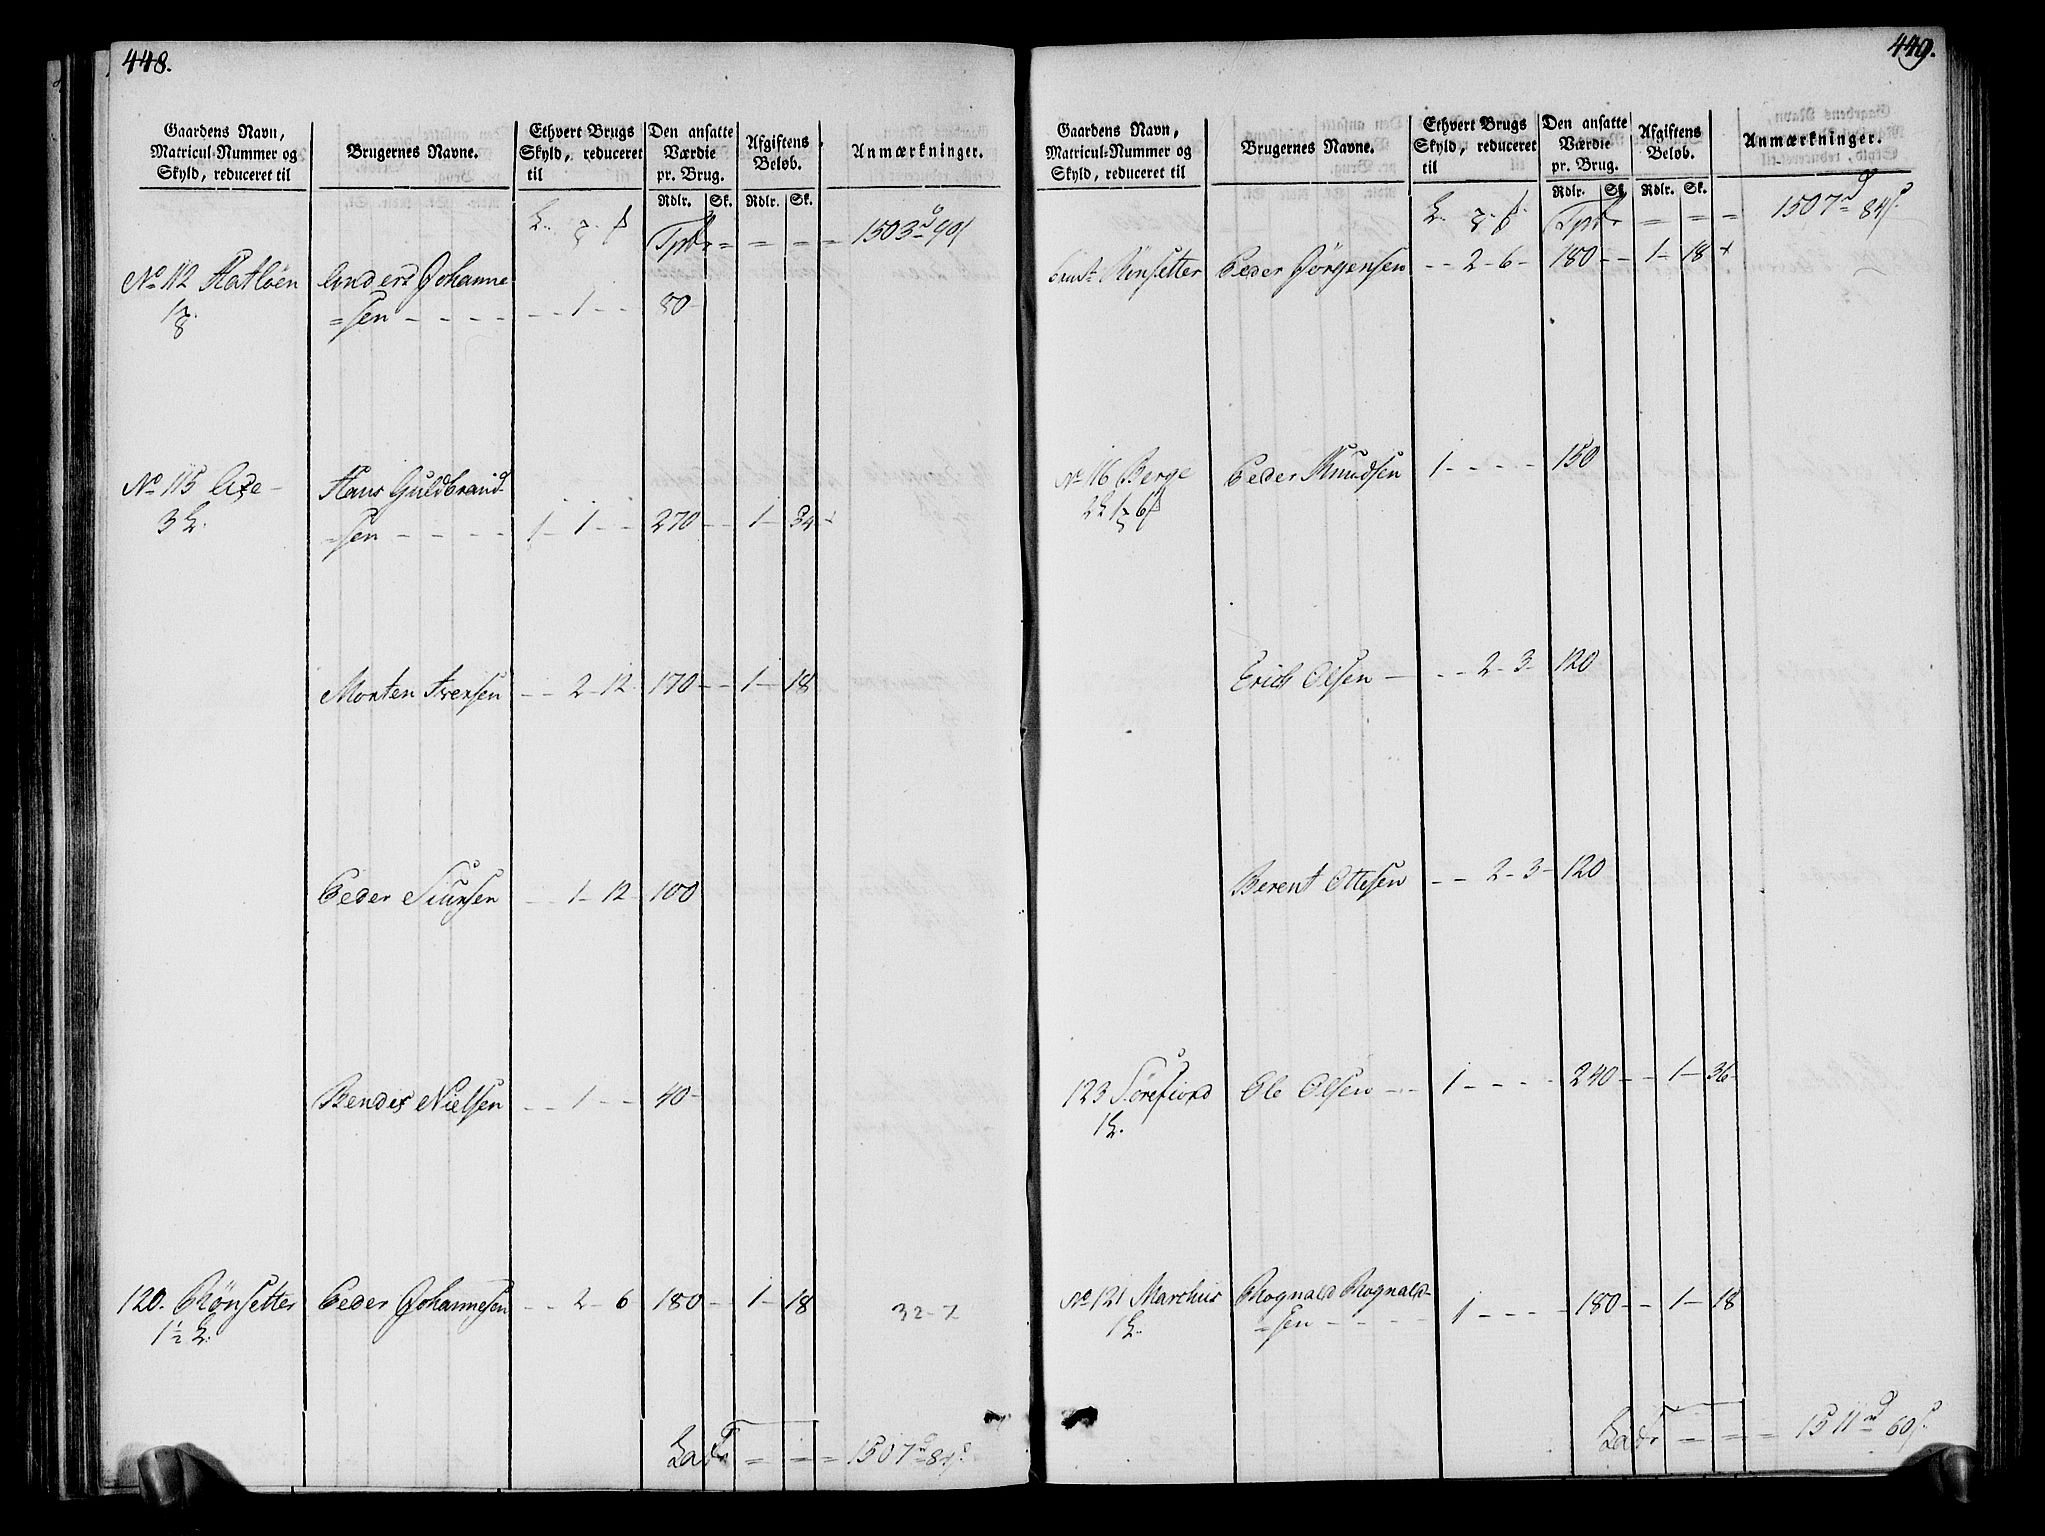 448.
Gaardens Navn, Matricul-Nummer og Skyld, reduceret til
Brugernes Navne.
Ethvert Brugs Skyld, reduceret til
Den ansatte Værdie pr. Brug.
Afgiftens Beløb.
Anmærkninger.
Rdlr. Sk. Rdlr. Sk.
Tpt = = = = 1503 90
No 112 Hatløen Anders Johanne
=sen - - - - - - 1 - - 80 -
No 115 Axe - Hans Guldbrand-
3 =sen - - - - 1 - 1 - - 270 - - 1 - 34
Morten Iversen - - 2 - 12 170 - - 1 - 18
Peder Siursen - - 1 - 12 100
Bendex Nielsen - - 1 - - 40 -
120. Rönsetter Peder Johannesen - - 2 - 6 180 - - 1 - 18
1½
32-7
Lat = = = 1507 84
449.
Gaardens Navn, Matricul-Nummer og Skyld, reduceret til
Brugernes Navne.
Ethvert Brugs Skyld, reduceret til
Den ansatte Værdie pr. Brug.
Afgiftens Beløb.
Anmærkninger.
Rdlr. Sk. Rdlr. Sk.
Tpt = = = 1507 84
Rönsetter Peder Jörgensen - - 2 - 6 - 180 - - 1 - 18
No 116 Berge Peder Knudsen 1 - - - - 150
Erich Olsen - - - 2 - 3 - 120
Berent Ottesen - - 2 - 3 - 120
123 Sörefiord Ole Olsen - - 1 - - - - 240 - - 1 - 36
1
No 121 Marchus Rognald Rognald-
1 =sen - - - - 1 - - - - 180 - - 1 - 18
Lat = = = 1511 60